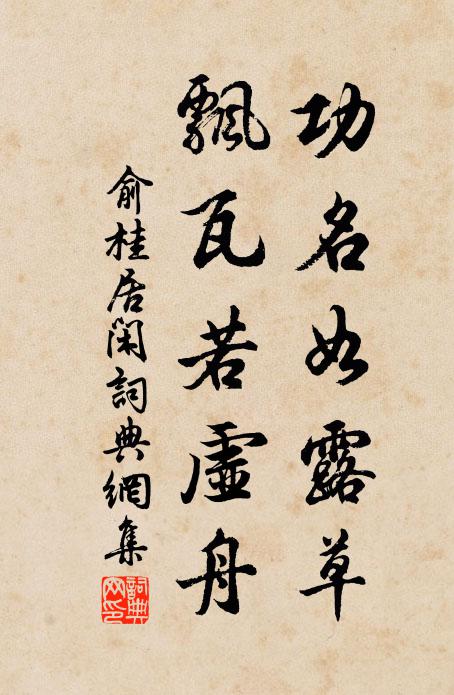 功名如露草
飄瓦若虛舟
俞桂居閑詞典網集
詞典网印